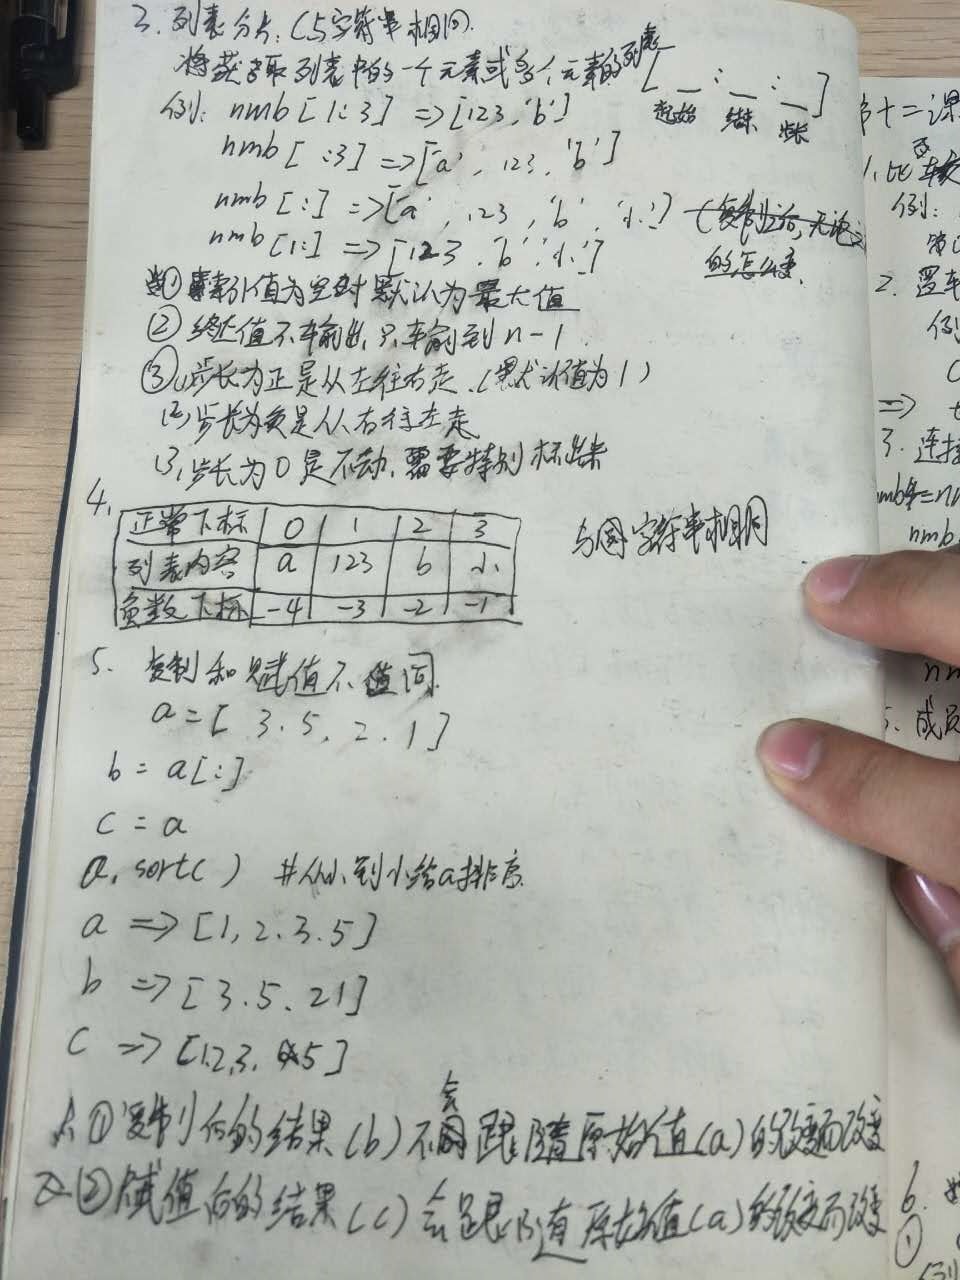 3. 列表分片:(与字符串相同)
将获取列表中的一个元素或多个元素的列表
[ _ : _ : _ ]
起始 结束 步长
例: nmb[1:3] => [123,'b']
nmb[:3] => ['a', 123, 'b']
nmb[:] => ['a', 123, 'b', '小']
nmb[1:] => [123, 'b', '小']
① 索引值为空时默认为最大值
② 终止值不输出,只输到n-1
③(1)步长为正是从左往右走.(默认值为1)
(2)步长为负是从右往左走
(3)步长为0是不动,需要特别标出来
4.
正常下标 0 1 2 3
列表内容 a 123 b 小
负数下标 -4 -3 -2 -1
与字符串相同
5. 复制和赋值不同
a=[3.5,2.1]
b=a[:]
c=a
a.sort() #从小到小给a排序
a => [1,2.3.5]
b => [3.5.21]
c => [1,2,3,5]
①复制后的结果(b)不会跟随原始值(a)的改变而改变
②赋值后的结果(c)会跟随原始值(a)的改变而改变
第十二课
例:
2.
例
=>
3. 连接
nmb
5. 成员
6.
①
例